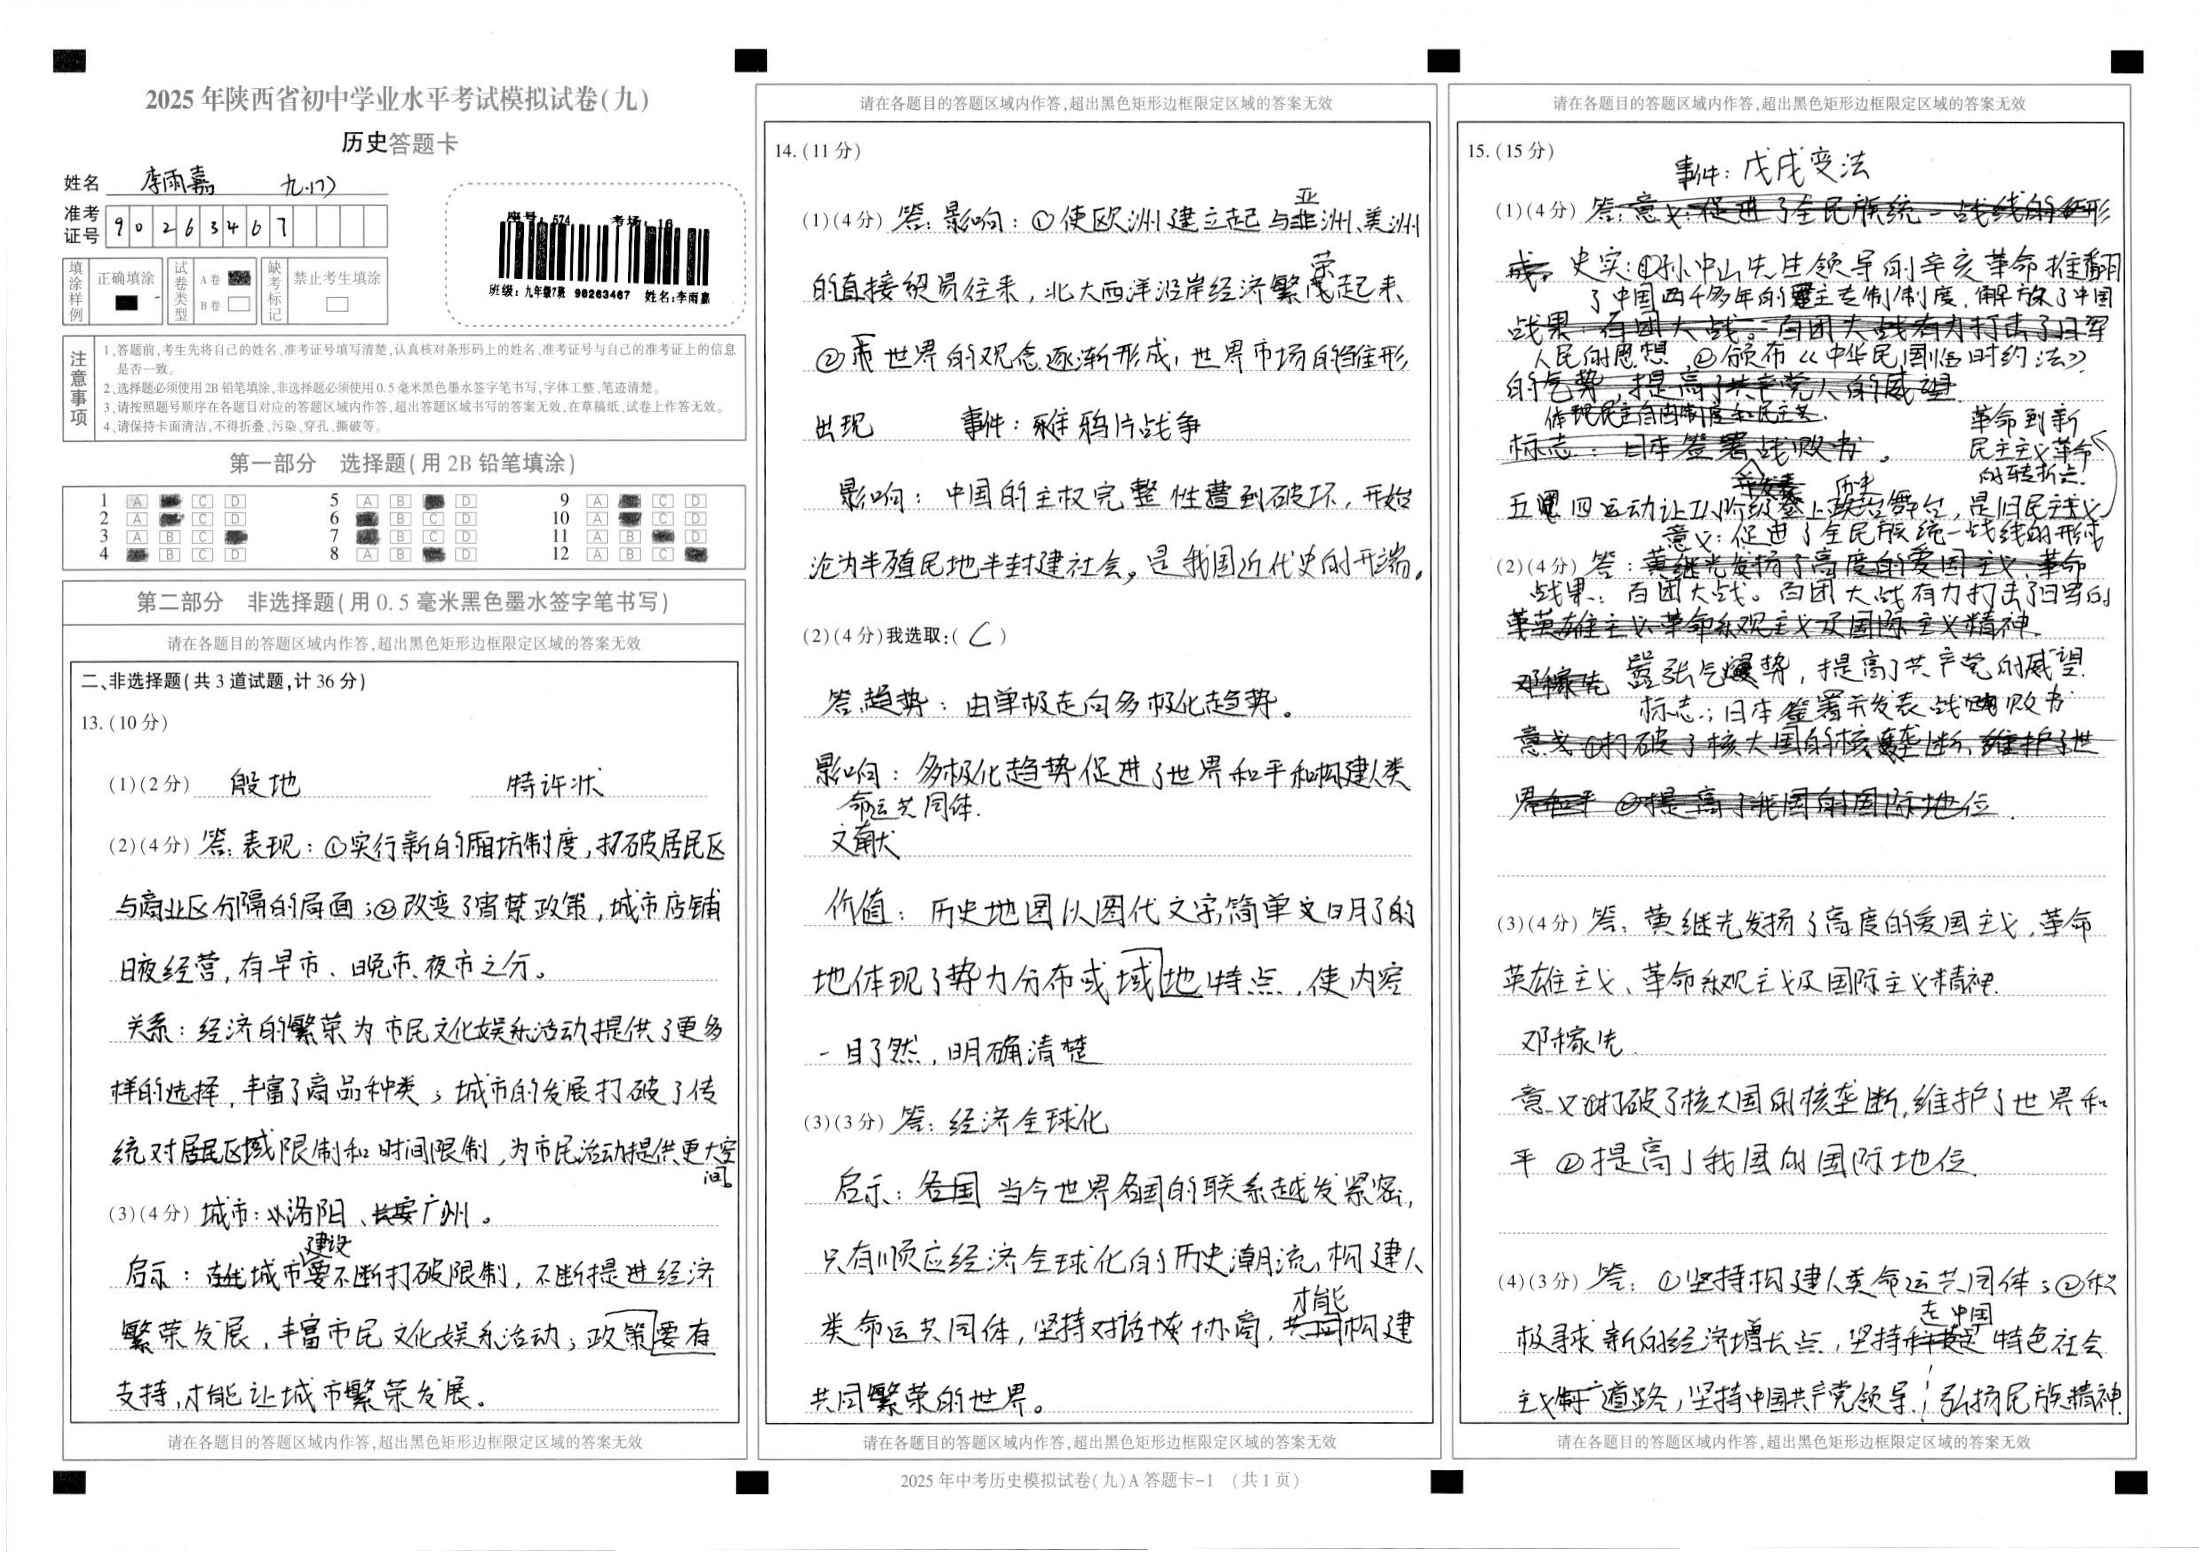 2025年陕西省初中学业水平考试模拟试卷(九)
历史答题卡
姓名 李雨嘉 九.(7)
准考证号 90263467
填涂样例 正确填涂
试卷类型 A卷 B卷
缺考标记 禁止考生填涂
座号:574 考场:16
班级:九年级7班 90263467 姓名:李雨嘉
注意事项
1.答题前,考生先将自己的姓名、准考证号填写清楚,认真核对条形码上的姓名、准考证号与自己的准考证上的信息
是否一致。
2.选择题必须使用2B铅笔填涂,非选择题必须使用0.5毫米黑色墨水签字笔书写,字体工整、笔迹清楚。
3.请按照题号顺序在各题目对应的答题区域内作答,超出答题区域书写的答案无效,在草稿纸、试卷上作答无效。
4.请保持卡面清洁,不得折叠、污染、穿孔、撕破等。
第一部分 选择题(用2B铅笔填涂)
1 A C D 5 A B D 9 A C D
2 A C D 6 B C D 10 A C D
3 A B C 7 B C D 11 A B D
4 B C D 8 A B D 12 A B C
第二部分 非选择题(用0.5毫米黑色墨水签字笔书写)
请在各题目的答题区域内作答,超出黑色矩形边框限定区域的答案无效
二、非选择题(共3道试题,计36分)
13.(10分)
(1)(2分) 殷地 特许状
(2)(4分) 答:表现:①实行新的厢坊制度,打破居民区
与商业区分隔的局面;②改变了宵禁政策,城市店铺
日夜经营,有早市、晚市、夜市之分。
关系:经济的繁荣为市民文化娱乐活动提供了更多
样的选择,丰富了商品种类;城市的发展打破了传
统对居民区域限制和时间限制,为市民活动提供更大空
间。
(3)(4分) 城市:洛阳、广州。
启示:城市建设要不断打破限制,不断提进经济
繁荣发展,丰富市民文化娱乐活动;政策要有
支持,才能让城市繁荣发展。
请在各题目的答题区域内作答,超出黑色矩形边框限定区域的答案无效
请在各题目的答题区域内作答,超出黑色矩形边框限定区域的答案无效
14.(11分)
(1)(4分) 答:影响:①使欧洲建立起与亚洲、美洲
的直接贸易往来,北大西洋沿岸经济繁荣起来
②世界的观念逐渐形成,世界市场的雏形
出现 事件:鸦片战争
影响:中国的主权完整性遭到破坏,开始
沦为半殖民地半封建社会,是我国近代史的开端。
(2)(4分)我选取:(C)
答:趋势:由单极走向多极化趋势。
影响:多极化趋势促进了世界和平和构建人类
命运共同体.
文献
价值:历史地图以图代文字简单文明了的
地体现了势力分布或域地特点,使内容
一目了然,明确清楚
(3)(3分) 答:经济全球化
启示:各国 当今世界各国的联系越发紧密,
只有顺应经济全球化的历史潮流,构建人
类命运共同体,坚持对话协商,才能构建
共同繁荣的世界。
请在各题目的答题区域内作答,超出黑色矩形边框限定区域的答案无效
2025年中考历史模拟试卷(九)A答题卡-1 (共1页)
请在各题目的答题区域内作答,超出黑色矩形边框限定区域的答案无效
15.(15分)
事件:戊戌变法
(1)(4分) 答:意义:促进了全民族统一战线的形
成。 史实:①孙中山先生领导的辛亥革命推翻
了中国两千多年的君主专制制度,解放了中国
战果:百团大战。百团大战有力打击了日军
人民的思想 ②颁布《中华民国临时约法》
的气势,提高了共产党人的威望.
革命到新
标志:日本签署战败书。
民主主义革命
的转折点!
五四运动让工人阶级登上历史舞台,是旧民主主义
意义:促进了全民族统一战线的形成
(2)(4分) 答:黄继光发扬了高度的爱国主义、革命
战果:百团大战。百团大战有力打击了日军的
英雄主义、革命乐观主义及国际主义精神.
邓稼先 嚣张气势,提高了共产党的威望.
标志:日本签署并发表战败书
意义①打破了核大国的核垄断,维护了世
界和平 ②提高了我国的国际地位.
(3)(4分) 答:黄继光发扬了高度的爱国主义、革命
英雄主义、革命乐观主义及国际主义精神.
邓稼先.
意义①打破了核大国的核垄断,维护了世界和
平 ②提高了我国的国际地位.
(4)(3分) 答:①坚持构建人类命运共同体;②积
极寻求新的经济增长点,坚持走中国特色社会
主义道路,坚持中国共产党领导;弘扬民族精神.
请在各题目的答题区域内作答,超出黑色矩形边框限定区域的答案无效